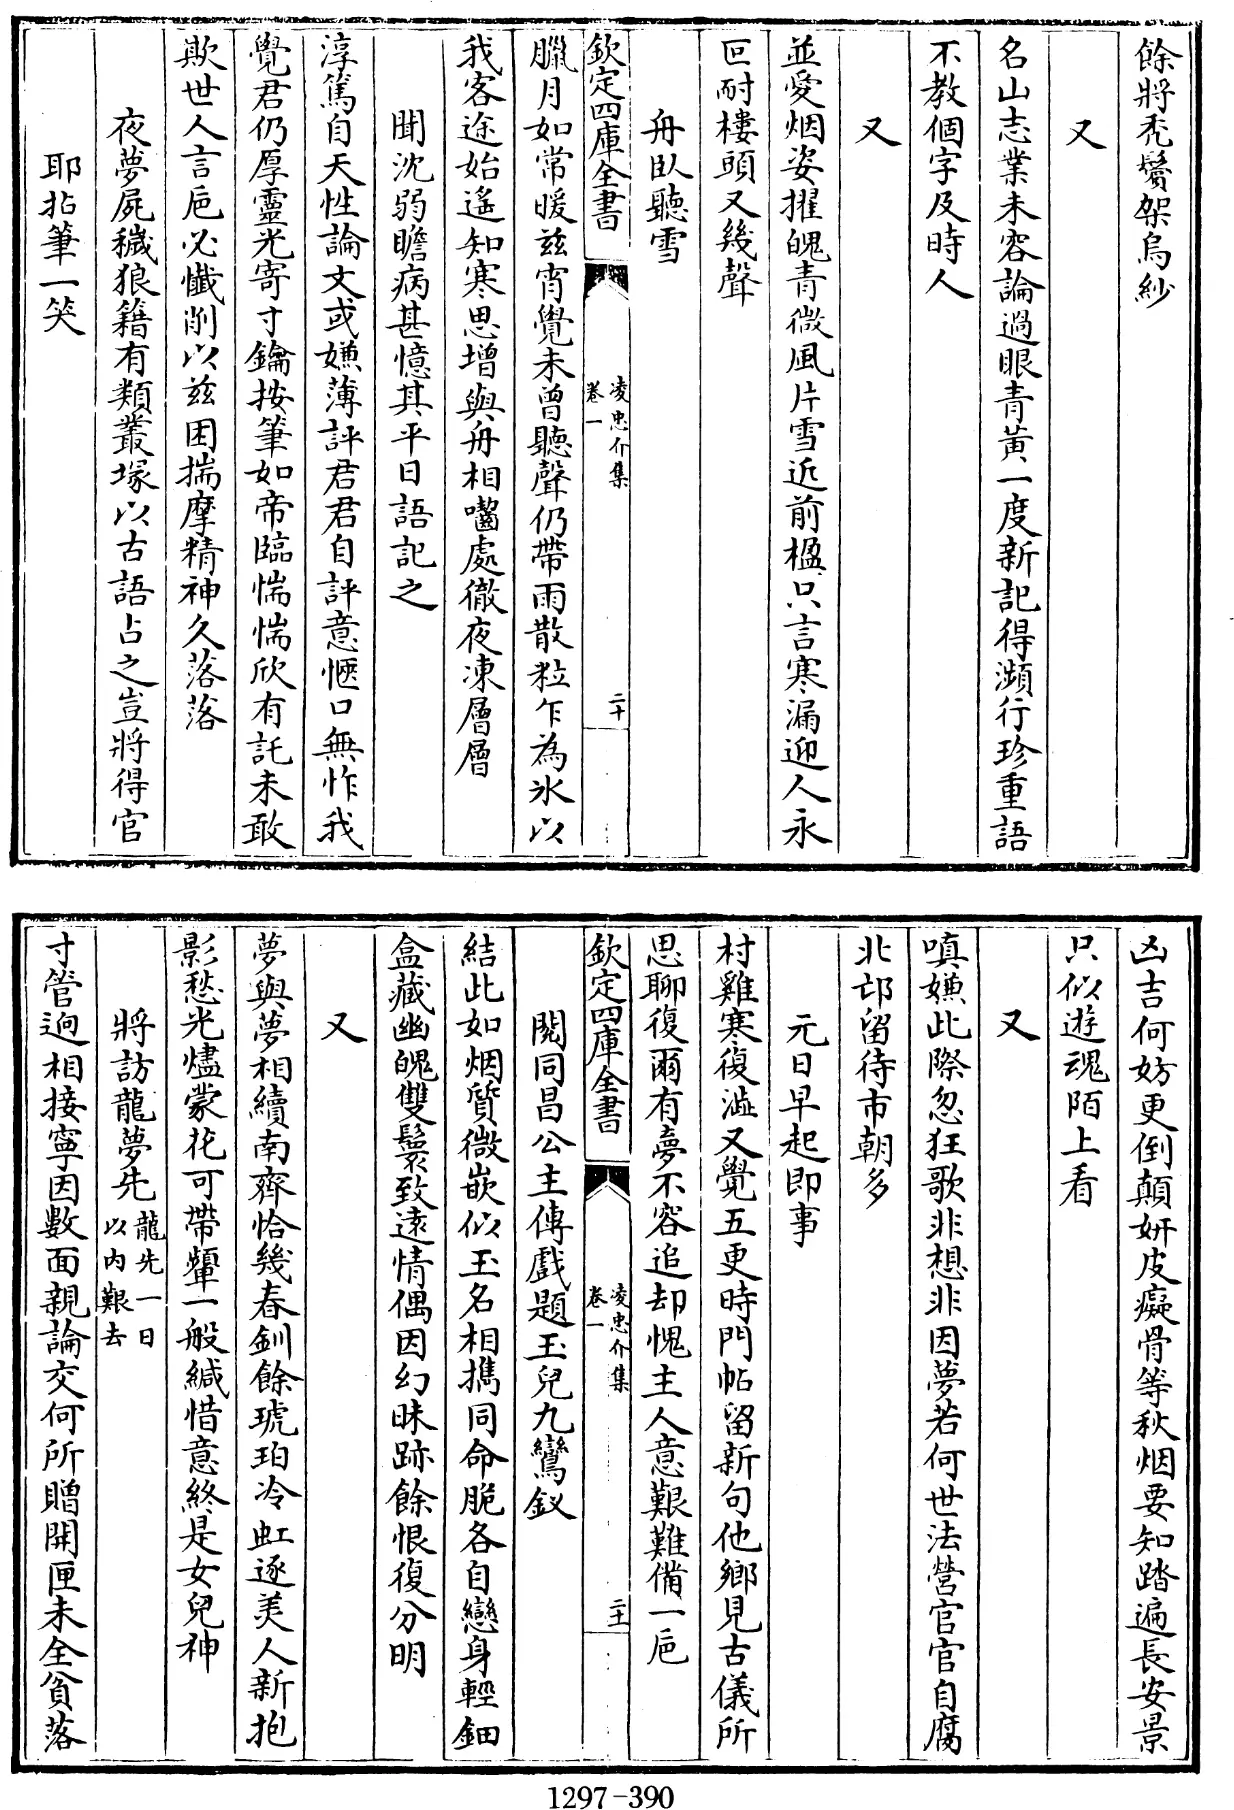 餘將禿鬢架烏紗
又
名山志業未容論過眼青黃一度新記得瀕行珍重語
不教個字及時人
又
並愛烟姿擢魄青微風片雪近前楹只言寒漏迎人永
叵耐樓頭又幾聲
舟臥聽雪
欽定四庫全書
凌忠介集
卷一
二十
臘月如常暖兹宵覺未曾聽聲仍帶雨散粒乍為氷以
我客途始遙知寒思增與舟相嚙處徹夜凍層層
聞沈弱瞻病甚憶其平日語記之
淳篤自天性論文或嫌薄評君君自評意愜口無怍我
覺君仍厚靈光寄寸鑰按筆如帝臨惴惴欣有託未敢
欺世人言巵必懺削以兹困揣摩精神久落落
夜夢屍穢狼籍有類叢塚以古語占之豈將得官
耶拈筆一笑
凶吉何妨更倒顛妍皮癡骨等秋烟要知踏遍長安景
只似遊魂陌上看
又
嗔嫌此際忽狂歌非想非因夢若何世法營官官自腐
北邙留待市朝多
元日早起即事
村雞寒復澁又覺五更時門帖留新句他鄉見古儀所
思聊復爾有夢不容追却愧主人意艱難備一巵
欽定四庫全書
凌忠介集
卷一
二十一
閱同昌公主傳戲題玉兒九鸞釵
結此如烟質微嵌似玉名相擕同命脆各自戀身輕鈿
盒藏幽魄雙鬟致遠情偶因幻昧跡餘恨復分明
又
夢與夢相續南齊恰幾春釧餘琥珀冷虹逐美人新抱
影愁光燼蒙花可帶顰一般緘惜意終是女兒神
將訪龍夢先龍先一日以内艱去
寸管逈相接寧因數面親論交何所贈開匣未全貧落
1297-390